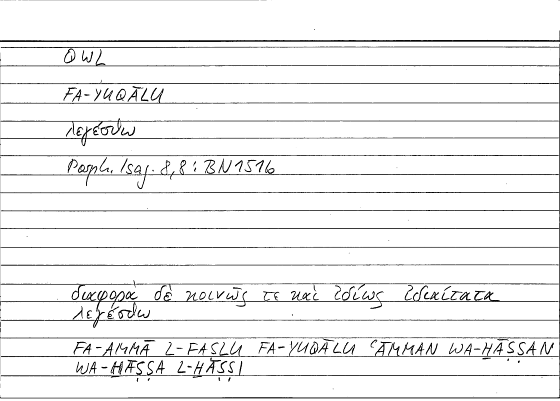 QWL
FA-YUQĀLU
λεγέσθω
Porph. Isag. 8,8 : BN151b
διαφορὰ δὲ κοινῶς τε καὶ ἰδίως ἰδιαίτατα
λεγέσθω
FA-AMMĀ L-FAṢLU FA-YUQĀLU ʿĀMMAN WA-ḪĀṢṢAN
WA-ḪĀṢṢA L-ḪĀṢṢI